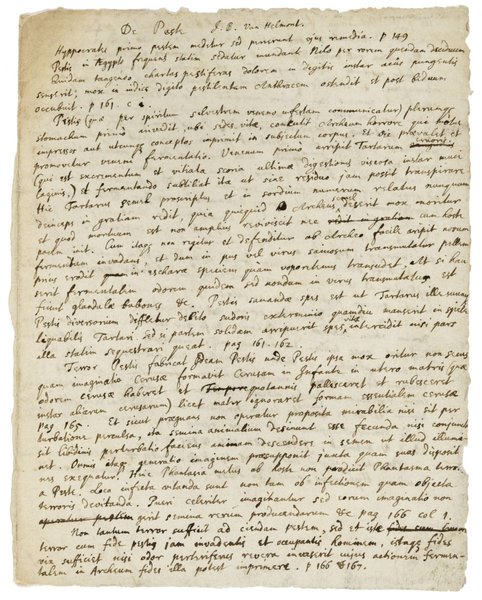 De Peste J. B. Van Helmont.
Hyppocrates primo pestem
Pestis in Ægypto frequens statim sedatur inundante Nilo per rorem quendam deciduum
Quidam tangendo chartas pestiferas dolorem in digitis instar acus pungentis
sensit; mox in indice digito pestilentem Anthracem ostendit et post biduum
occubuit. p 161. c 2.
Pestis (quæ per spiritum silvestrem veneno infestum communicatur) plerunque
stomachum primo invadit, ubi sedes vitæ, Archeum horrore qui
impressos aut utcunque conceptos imprimit in subjectum corpus. et
promovetur veneni fermentatio. Venenum primo arripit Tartarum sanguinis
(qui est excrementum et vitiata scoria ultimæ digestionis viscera instar
) et fermentando subtiliat ita ut sine residuo jam possit transpirare
Hic Tartarus semel proscriptus et in sordium numerum relatus nunquam
deinceps in gratiam redit, quia quicquid Archeus deserit mox moritur
et quod mortuum est non amplius reviviscit nec cum hoste
init. Cum itaque non regitur et defenditur ab Archeo facile arripit novum
fermentum invadens, et dum in pus vel virus transmutatur pellem
prius erodit in escharæ speciem quam vaporetenus transudet. At si
serit fermentalem odorem quidem sed nondam in virus transmutatum est
fiunt glandulæ bubones &c. Pestis sanandæ spes est ut Tartarus ille
Pestis diversorium diffletur debito sudoris exterminio quamdiu manserit in specie
liquabilis Tartari, sed si partem solidam arripuerit spes vitæ intercidit nisi pars
illa statim sequestrari queat. pag. 161. 162.
Terror Pestis fabricat Ideam Pestis unde Pestis ipsa mox oritur non secus
quam imaginatio Cerasi formavit Cerasum in Infante in utero matris (quæ
odorem cerasi haberet quotannis pallesceret et rubesceret
instar aliarum cerasorum) licet mater ignoraret formam essentialem cerasi
pag 165. Et sicut prægnans non operatur proposita mirabilia nisi sit per
turbatione perculsa, ita semina animalium desinunt esse fecunda nisi conjuncta
sit libidinis perturbatio faciens animam descendere in semen ut illud illumi-
net. Omnis itaque generatio imaginem præsupponit juxta quam suas disposit
nes exequatur. Hæc Phantasia metus ab hoste non producit Phantasma terro-
a Peste. Loca infecta vitanda sunt non tam ob infectionem quam objecta
terroris devitanda. Pueri celeriter imaginantur sed eorum imaginatio non
gerit semina rerum producendarum &c pag 166 col 1.
Non tantum terror sufficit ad ciendam pestem, sed et
terror cum fide pestis jam invadentis et occupantis hominem, istæc fides
vix sufficit nisi odor pestiferus revera invaserit cujus actionem fermen-
talem in Archeum fides illa potest imprimere. p 166 & 167.